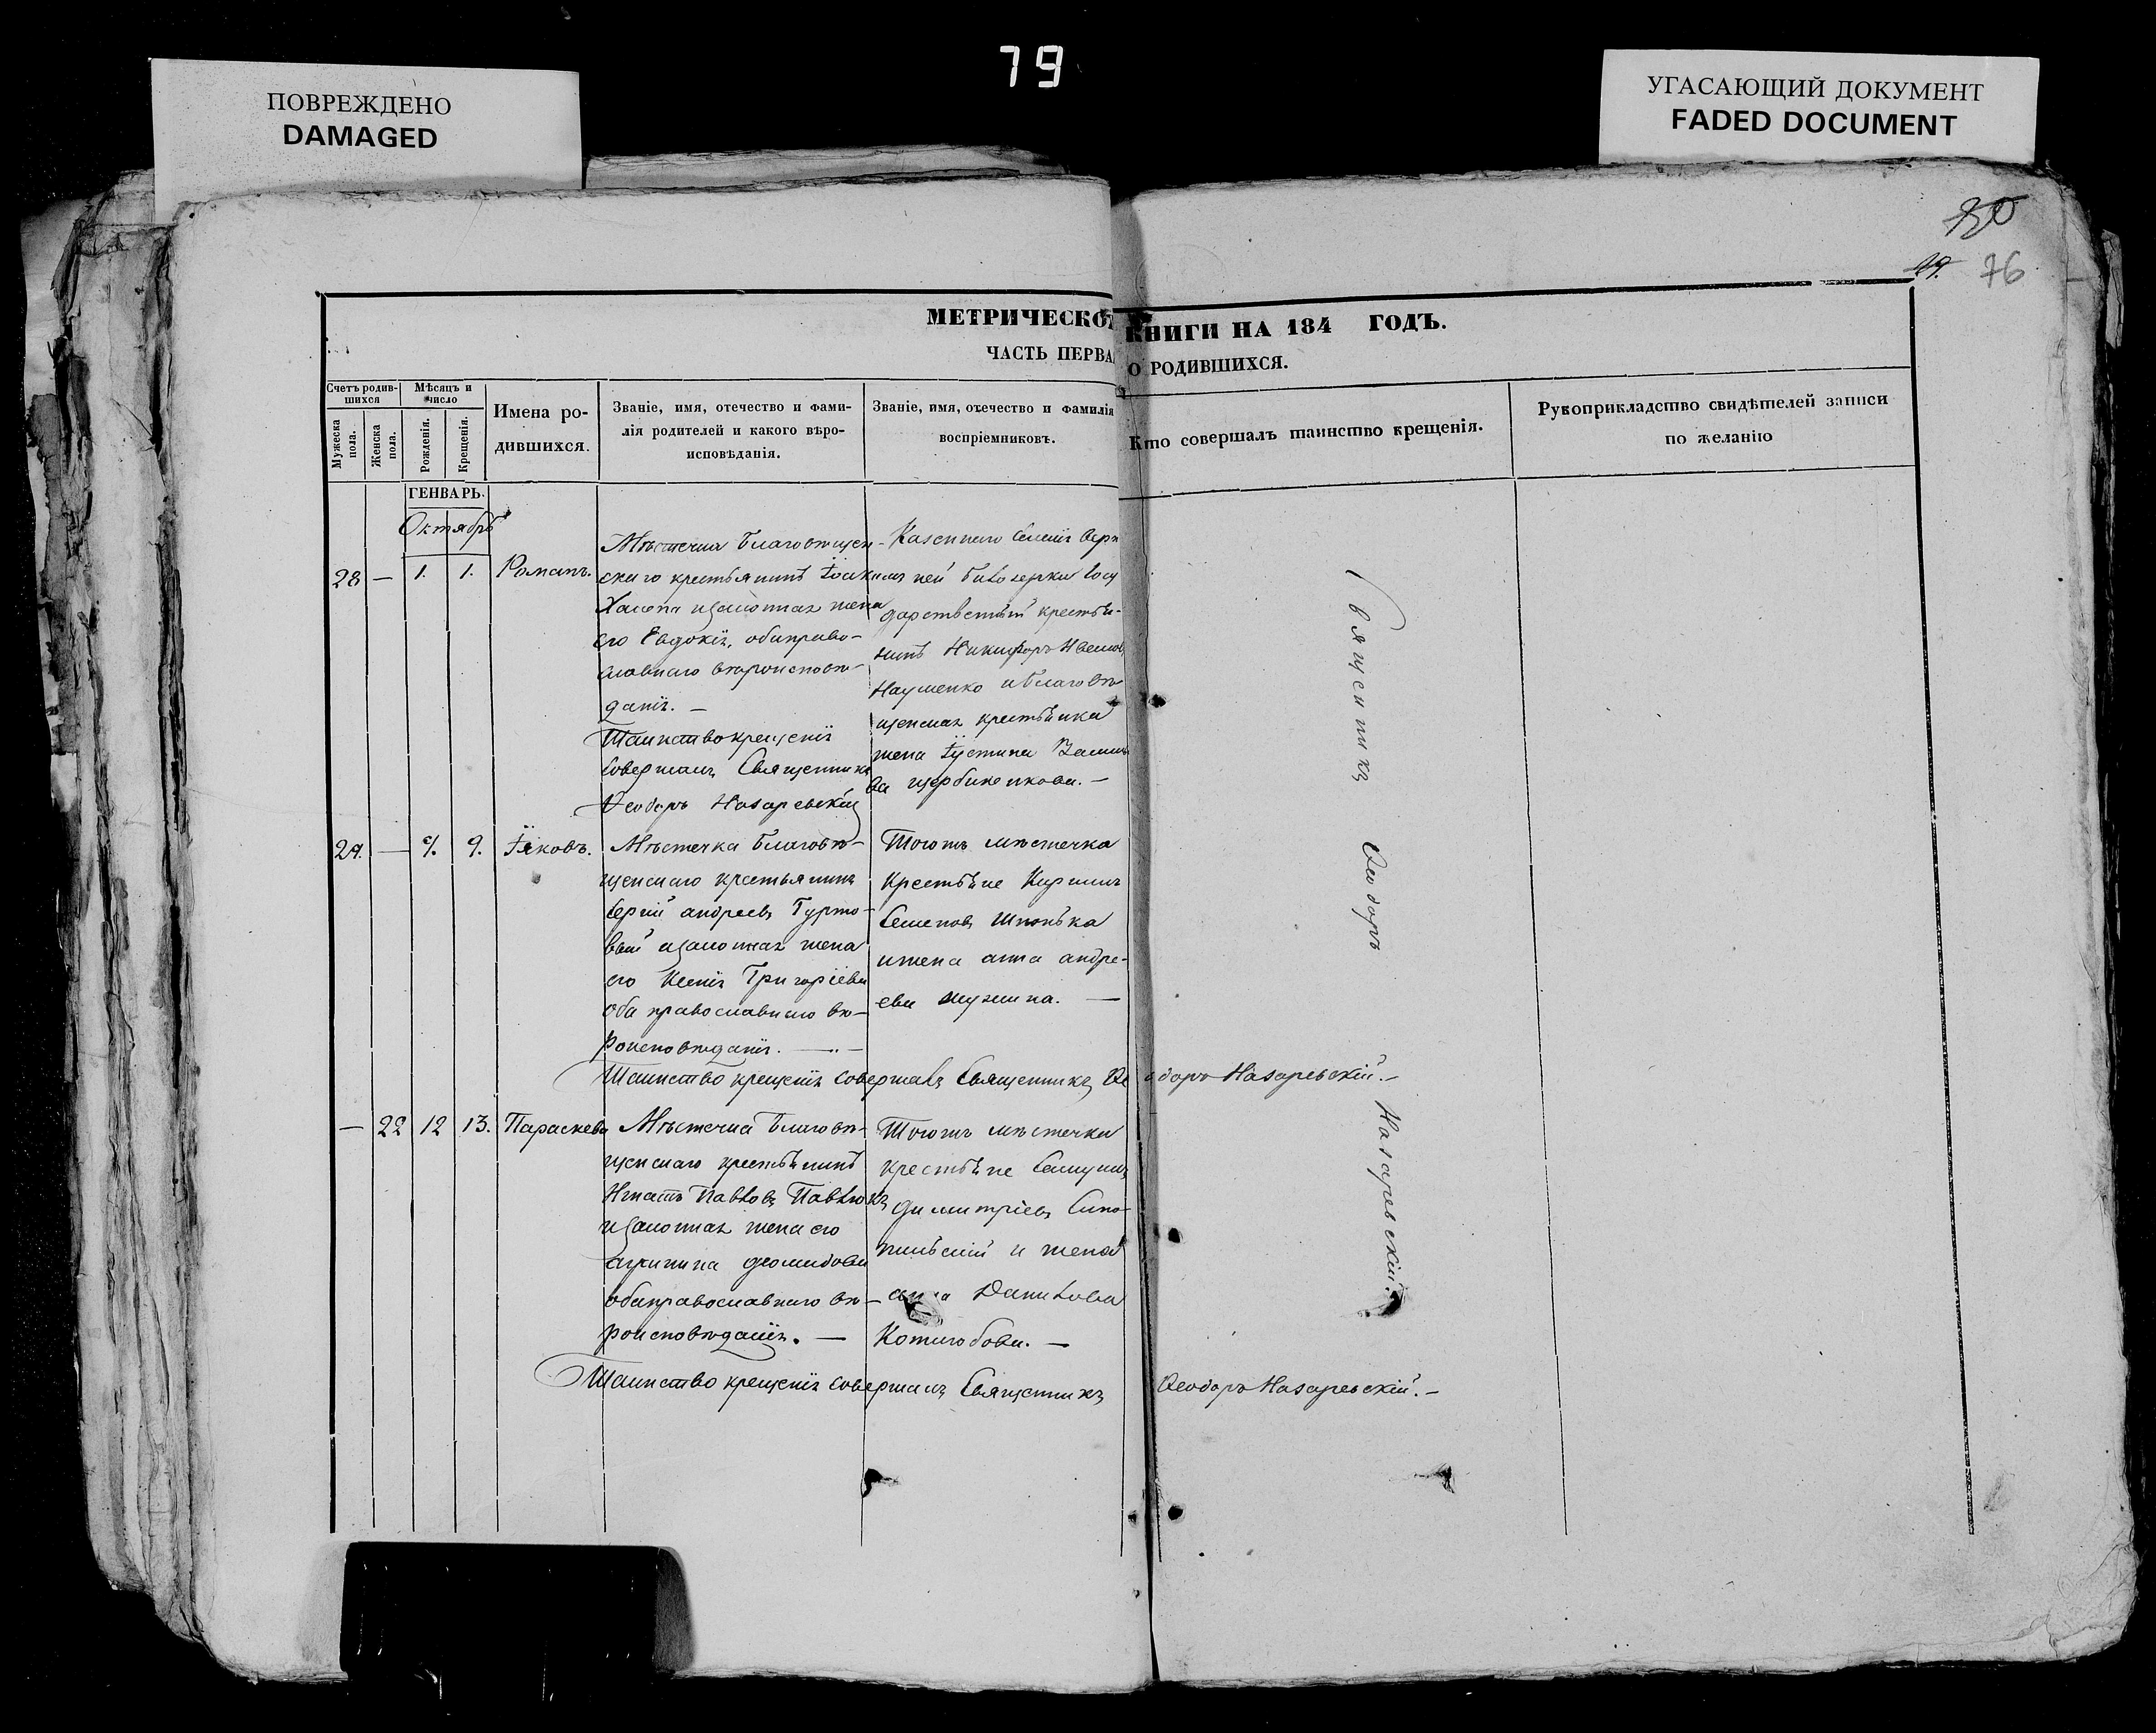 79
ПОВРЕЖДЕНО
DAMAGED
УГАСАЮЩИЙ ДОКУМЕНТ
FADED DOCUMENT
80
76
МЕТРИЧЕСКОЙ КНИГИ НА 184 ГОДЪ.
ЧАСТЬ ПЕРВАЯ О РОДИВШИХСЯ.
Счетъ родив-
шихся
Мужеска
пола.
Женска
пола.
Мѣсяцъ и
число
Рожденія.
Крещенія.
Имена ро-
дившихся.
Званіе, имя, отечество и фами-
лія родителей и какого вѣро-
исповѣданія.
Званіе, имя, отечество и фамилія
воспріемниковъ.
Кто совершалъ таинство крещенія.
Рукоприкладство свидѣтелей записи
по желанію
ГЕНВАРЬ.
Октябрь
28 — 1. 1. Романъ.
Мѣстечка Благовѣщен-
скаго крестьянинъ Іоакимъ
законная жена
его Евдокія, оба право-
славнаго вѣроисповѣ-
данія. —
Таинство крещенія
совершалъ Священникъ
Ѳеодоръ Назаревскій
Казеннаго Селенія Верх
ней Бѣлозерки Госу
дарственный крестья-
нинъ Никифоръ
Науменко и Благовѣ
щенская крестьянка
жена Іустина
ва Щербиненкова. —
Священникъ Ѳеодоръ Назаревскій.
29. — 9. 9. Іяковъ.
Мѣстечка Благовѣ-
щенскаго крестьянинъ
Сергій Андреевъ Гурто-
вый законная жена
его Ксенія Григоріева
оба православнаго вѣ-
роисповѣданія. —
Тогожъ мѣстечка
Крестьяне Кириллъ
Семеновъ Шпонька
и жена Анна Андре-
ева
Таинство крещенія совершалъ Священникъ Ѳеодоръ Назаревскій. —
— 22 12 13. Параскева
Мѣстечка Благовѣ-
щенскаго крестьянинъ
Игнатъ Павловъ Павлюкъ
законная жена его
Агрипина Діомидова
оба православнаго вѣ-
роисповѣданія. —
Тогожъ мѣстечка
крестьяне Самуилъ
Димитріевъ
и жена
Данилова
Таинство крещенія совершалъ Священникъ Ѳеодоръ Назаревскій. —